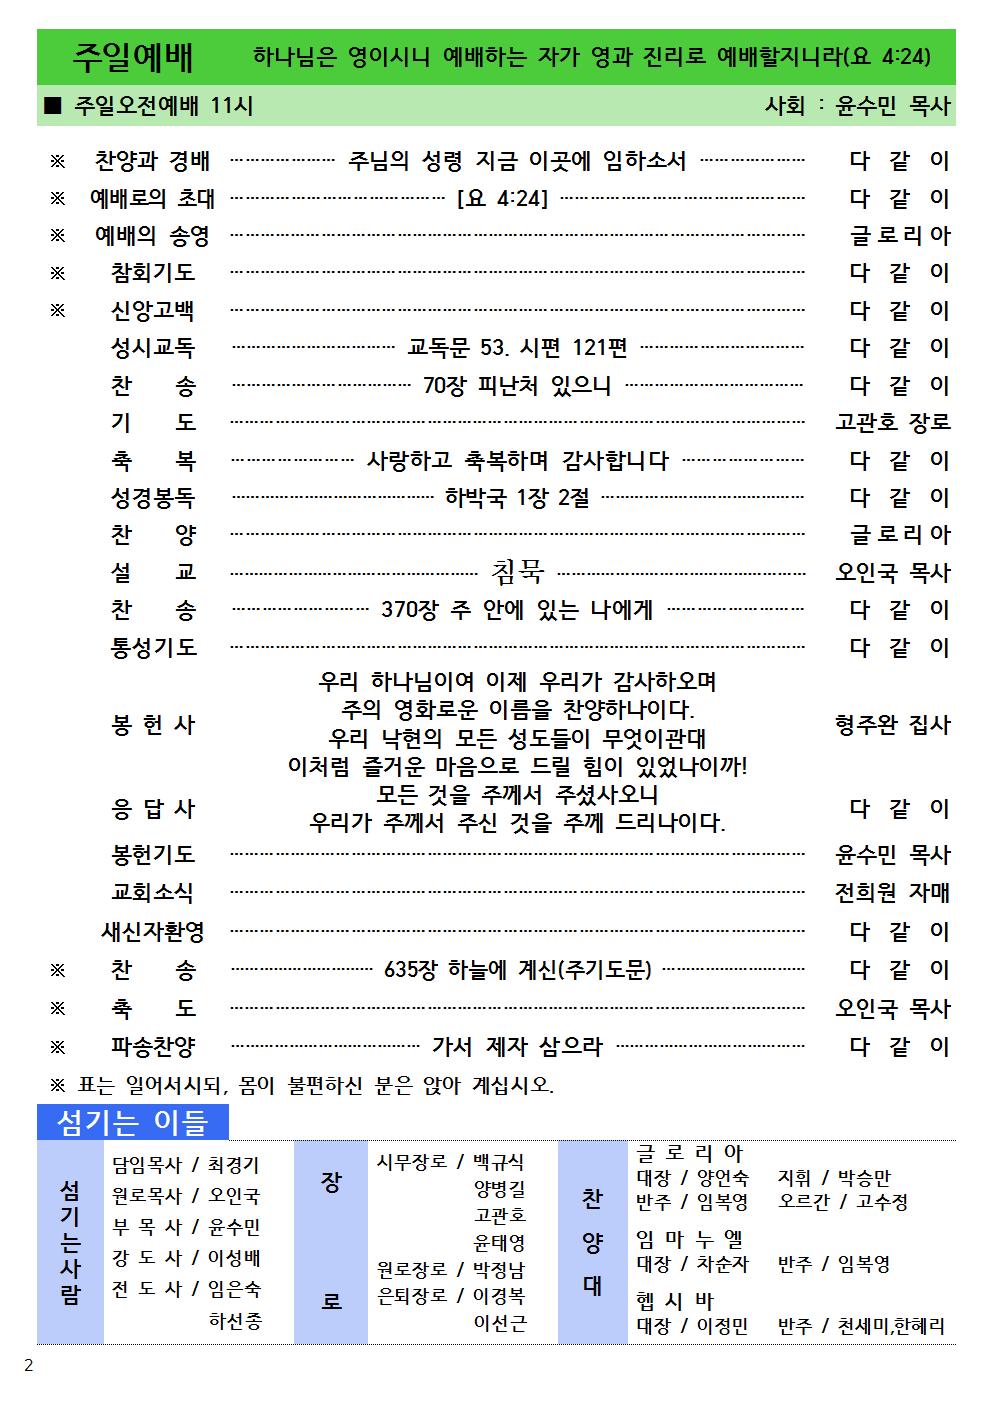 주일예배 하나님은 영이시니 예배하는 자가 영과 진리로 예배할지니라(요 4:24)
■ 주일오전예배 11시 사회 : 윤수민 목사
※ 찬양과 경배 ………………… 주님의 성령 지금 이곳에 임하소서 ………………… 다 같 이
※ 예배로의 초대 …………………………………… [요 4:24] ………………………………………… 다 같 이
※ 예배의 송영 …………………………………………………………………………………………………… 글로리아
※ 참회기도 …………………………………………………………………………………………………… 다 같 이
※ 신앙고백 …………………………………………………………………………………………………… 다 같 이
성시교독 …………………………… 교독문 53. 시편 121편 …………………………… 다 같 이
찬 송 ……………………………… 70장 피난처 있으니 ……………………………… 다 같 이
기 도 …………………………………………………………………………………………………… 고관호 장로
축 복 …………………… 사랑하고 축복하며 감사합니다 …………………… 다 같 이
성경봉독 ………………………………… 하박국 1장 2절 ………………………………… 다 같 이
찬 양 …………………………………………………………………………………………………… 글로리아
설 교 ………………………………………… 침묵 ………………………………………… 오인국 목사
찬 송 ……………………… 370장 주 안에 있는 나에게 ……………………… 다 같 이
통성기도 …………………………………………………………………………………………………… 다 같 이
우리 하나님이여 이제 우리가 감사하오며
주의 영화로운 이름을 찬양하나이다.
봉 헌 사 형주완 집사
우리 낙현의 모든 성도들이 무엇이관대
이처럼 즐거운 마음으로 드릴 힘이 있었나이까!
모든 것을 주께서 주셨사오니
응 답 사 다 같 이
우리가 주께서 주신 것을 주께 드리나이다.
봉헌기도 …………………………………………………………………………………………………… 윤수민 목사
교회소식 …………………………………………………………………………………………………… 전희원 자매
새신자환영 …………………………………………………………………………………………………… 다 같 이
※ 찬 송 ………………………… 635장 하늘에 계신(주기도문) ………………………… 다 같 이
※ 축 도 …………………………………………………………………………………………………… 오인국 목사
※ 파송찬양 ……………………………… 가서 제자 삼으라 ……………………………… 다 같 이
※ 표는 일어서시되, 몸이 불편하신 분은 앉아 계십시오.
섬기는 이들
섬기는사람
담임목사 / 최경기
원로목사 / 오인국
부 목 사 / 윤수민
강 도 사 / 이성배
전 도 사 / 임은숙
하선종
장로
시무장로 / 백규식
양병길
고관호
윤태영
원로장로 / 박정남
은퇴장로 / 이경복
이선근
찬양대
글 로 리 아
대장 / 양언숙 지휘 / 박승만
반주 / 임복영 오르간 / 고수정
임 마 누 엘
대장 / 차순자 반주 / 임복영
헵 시 바
대장 / 이정민 반주 / 천세미,한혜리
2